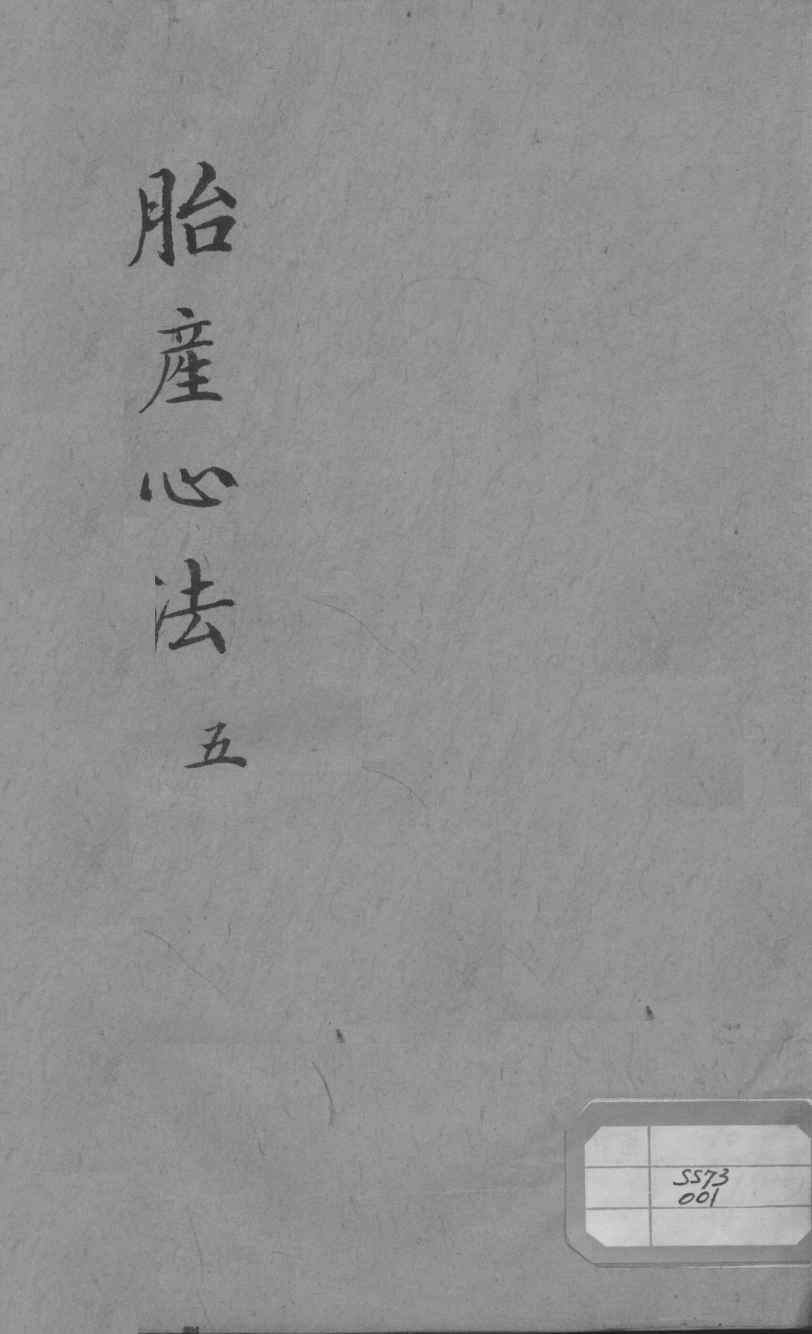 胎產心法
五
SS73
001